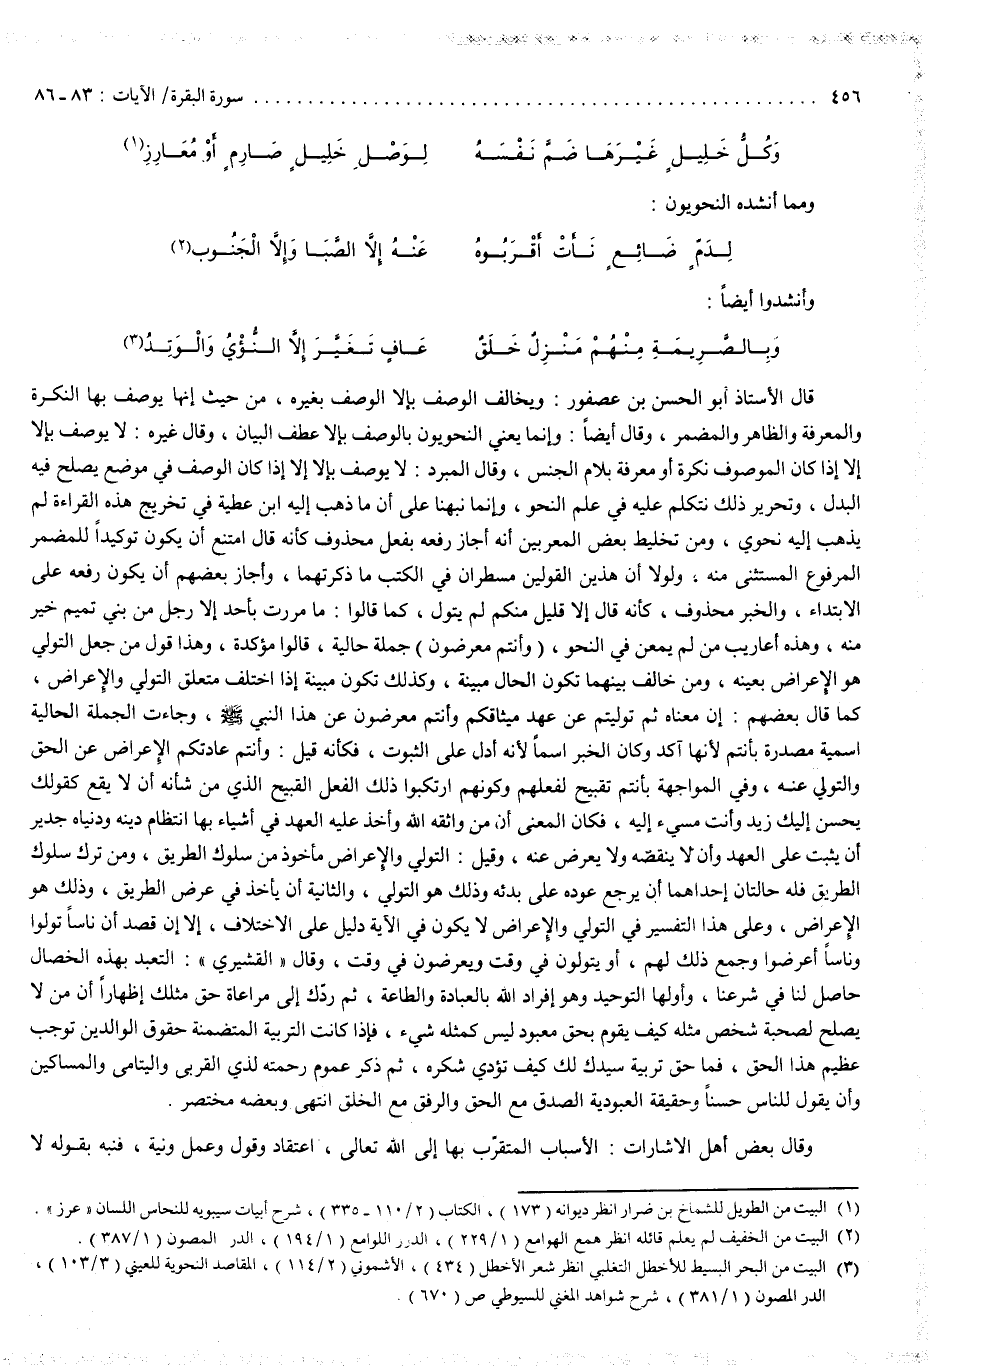 ٤٥٦ ........................................................ سورة البقرة/ الآيات : ٨٣ ـ ٨٦
وَكُلُّ خَلِيلٍ غَيْرَهَا ضَمَّ نَفْسَهُ لِوَصْلِ خَلِيلٍ صَارِمٍ أَوْ مُعَارِزِ(١)
ومما أنشده النحويون :
لِدَمٍ ضَائِعٍ نَأَتْ أَقْرَبُوهُ عَنْهُ إِلَّا الصَّبَا وَإِلَّا الْجَنُوب(٢)
وأنشدوا أيضاً :
وَبِالصَّرِيمَةِ مِنْهُمْ مَنْزِلٌ خَلَقٌ عَافٍ تَغَيَّرَ إِلَّا النُّؤْيُ وَالْوَتِدُ(٣)
قال الأستاذ أبو الحسن بن عصفور : ويخالف الوصف بإلا الوصف بغيره ، من حيث إنها يوصف بها النكرة
والمعرفة والظاهر والمضمر ، وقال أيضاً : وإنما يعني النحويون بالوصف بإلا عطف البيان ، وقال غيره : لا يوصف بإلا
إلا إذا كان الموصوف نكرة أو معرفة بلام الجنس ، وقال المبرد : لا يوصف بإلا إلا إذا كان الوصف في موضع يصلح فيه
البدل ، وتحرير ذلك نتكلم عليه في علم النحو ، وإنما نبهنا على أن ما ذهب إليه ابن عطية في تخريج هذه القراءة لم
يذهب إليه نحوي ، ومن تخليط بعض المعربين أنه أجاز رفعه بفعل محذوف كأنه قال امتنع أن يكون توكيداً للمضمر
المرفوع المستثنى منه ، ولولا أن هذين القولين مسطران في الكتب ما ذكرتهما ، وأجاز بعضهم أن يكون رفعه على
الابتداء ، والخبر محذوف ، كأنه قال إلا قليل منكم لم يتول ، كما قالوا : ما مررت بأحد إلا رجل من بني تميم خير
منه ، وهذه أعاريب من لم يمعن في النحو ، ( وأنتم معرضون ) جملة حالية ، قالوا مؤكدة ، وهذا قول من جعل التولي
هو الإعراض بعينه ، ومن خالف بينهما تكون الحال مبينة ، وكذلك تكون مبينة إذا اختلف متعلق التولي والإعراض ،
كما قال بعضهم : إن معناه ثم توليتم عن عهد ميثاقكم وأنتم معرضون عن هذا النبي ﷺ ، وجاءت الجملة الحالية
اسمية مصدرة بأنتم لأنها آكد وكان الخبر اسماً لأنه أدل على الثبوت ، فكأنه قيل : وأنتم عادتكم الإعراض عن الحق
والتولي عنه ، وفي المواجهة بأنتم تقبيح لفعلهم وكونهم ارتكبوا ذلك الفعل القبيح الذي من شأنه أن لا يقع كقولك
يحسن إليك زيد وأنت مسيء إليه ، فكان المعنى أن من واثقه الله وأخذ عليه العهد في أشياء بها انتظام دينه ودنياه جدير
أن يثبت على العهد وأن لا ينقضه ولا يعرض عنه ، وقيل : التولي والإعراض مأخوذ من سلوك الطريق ، ومن ترك سلوك
الطريق فله حالتان إحداهما أن يرجع عوده على بدئه وذلك هو التولي ، والثانية أن يأخذ في عرض الطريق ، وذلك هو
الإعراض ، وعلى هذا التفسير في التولي والإعراض لا يكون في الآية دليل على الاختلاف ، إلا إن قصد أن ناساً تولوا
وناساً أعرضوا وجمع ذلك لهم ، أو يتولون في وقت ويعرضون في وقت ، وقال « القشيري » : التعبد بهذه الخصال
حاصل لنا في شرعنا ، وأولها التوحيد وهو إفراد الله بالعبادة والطاعة ، ثم ردّك إلى مراعاة حق مثلك إظهاراً أن من لا
يصلح لصحبة شخص مثله كيف يقوم بحق معبود ليس كمثله شيء ، فإذا كانت التربية المتضمنة حقوق الوالدين توجب
عظيم هذا الحق ، فما حق تربية سيدك لك كيف تؤدي شكره ، ثم ذكر عموم رحمته لذي القربى واليتامى والمساكين
وأن يقول للناس حسناً وحقيقة العبودية الصدق مع الحق والرفق مع الخلق انتهى وبعضه مختصر .
وقال بعض أهل الاشارات : الأسباب المتقرّب بها إلى الله تعالى ، اعتقاد وقول وعمل ونية ، فنبه بقوله لا
(١) البيت من الطويل للشماخ بن ضرار انظر ديوانه ( ١٧٣ ) ، الكتاب ( ٢/ ١١٠ ـ ٣٣٥ ) ، شرح أبيات سيبويه للنحاس اللسان « عرز » .
(٢) البيت من الخفيف لم يعلم قائله انظر همع الهوامع ( ١/ ٢٢٩ ) ، الدرر اللوامع ( ١/ ١٩٤ ) ، الدر المصون ( ١/ ٣٨٧ ) .
(٣) البيت من البحر البسيط للأخطل التغلبي انظر شعر الأخطل ( ٤٣٤ ) ، الأشموني ( ٢/ ١١٤ ) ، المقاصد النحوية للعيني ( ٣/ ١٠٣ ) ،
الدر المصون ( ١/ ٣٨١ ) ، شرح شواهد المغني للسيوطي ص ( ٦٧٠ ) .